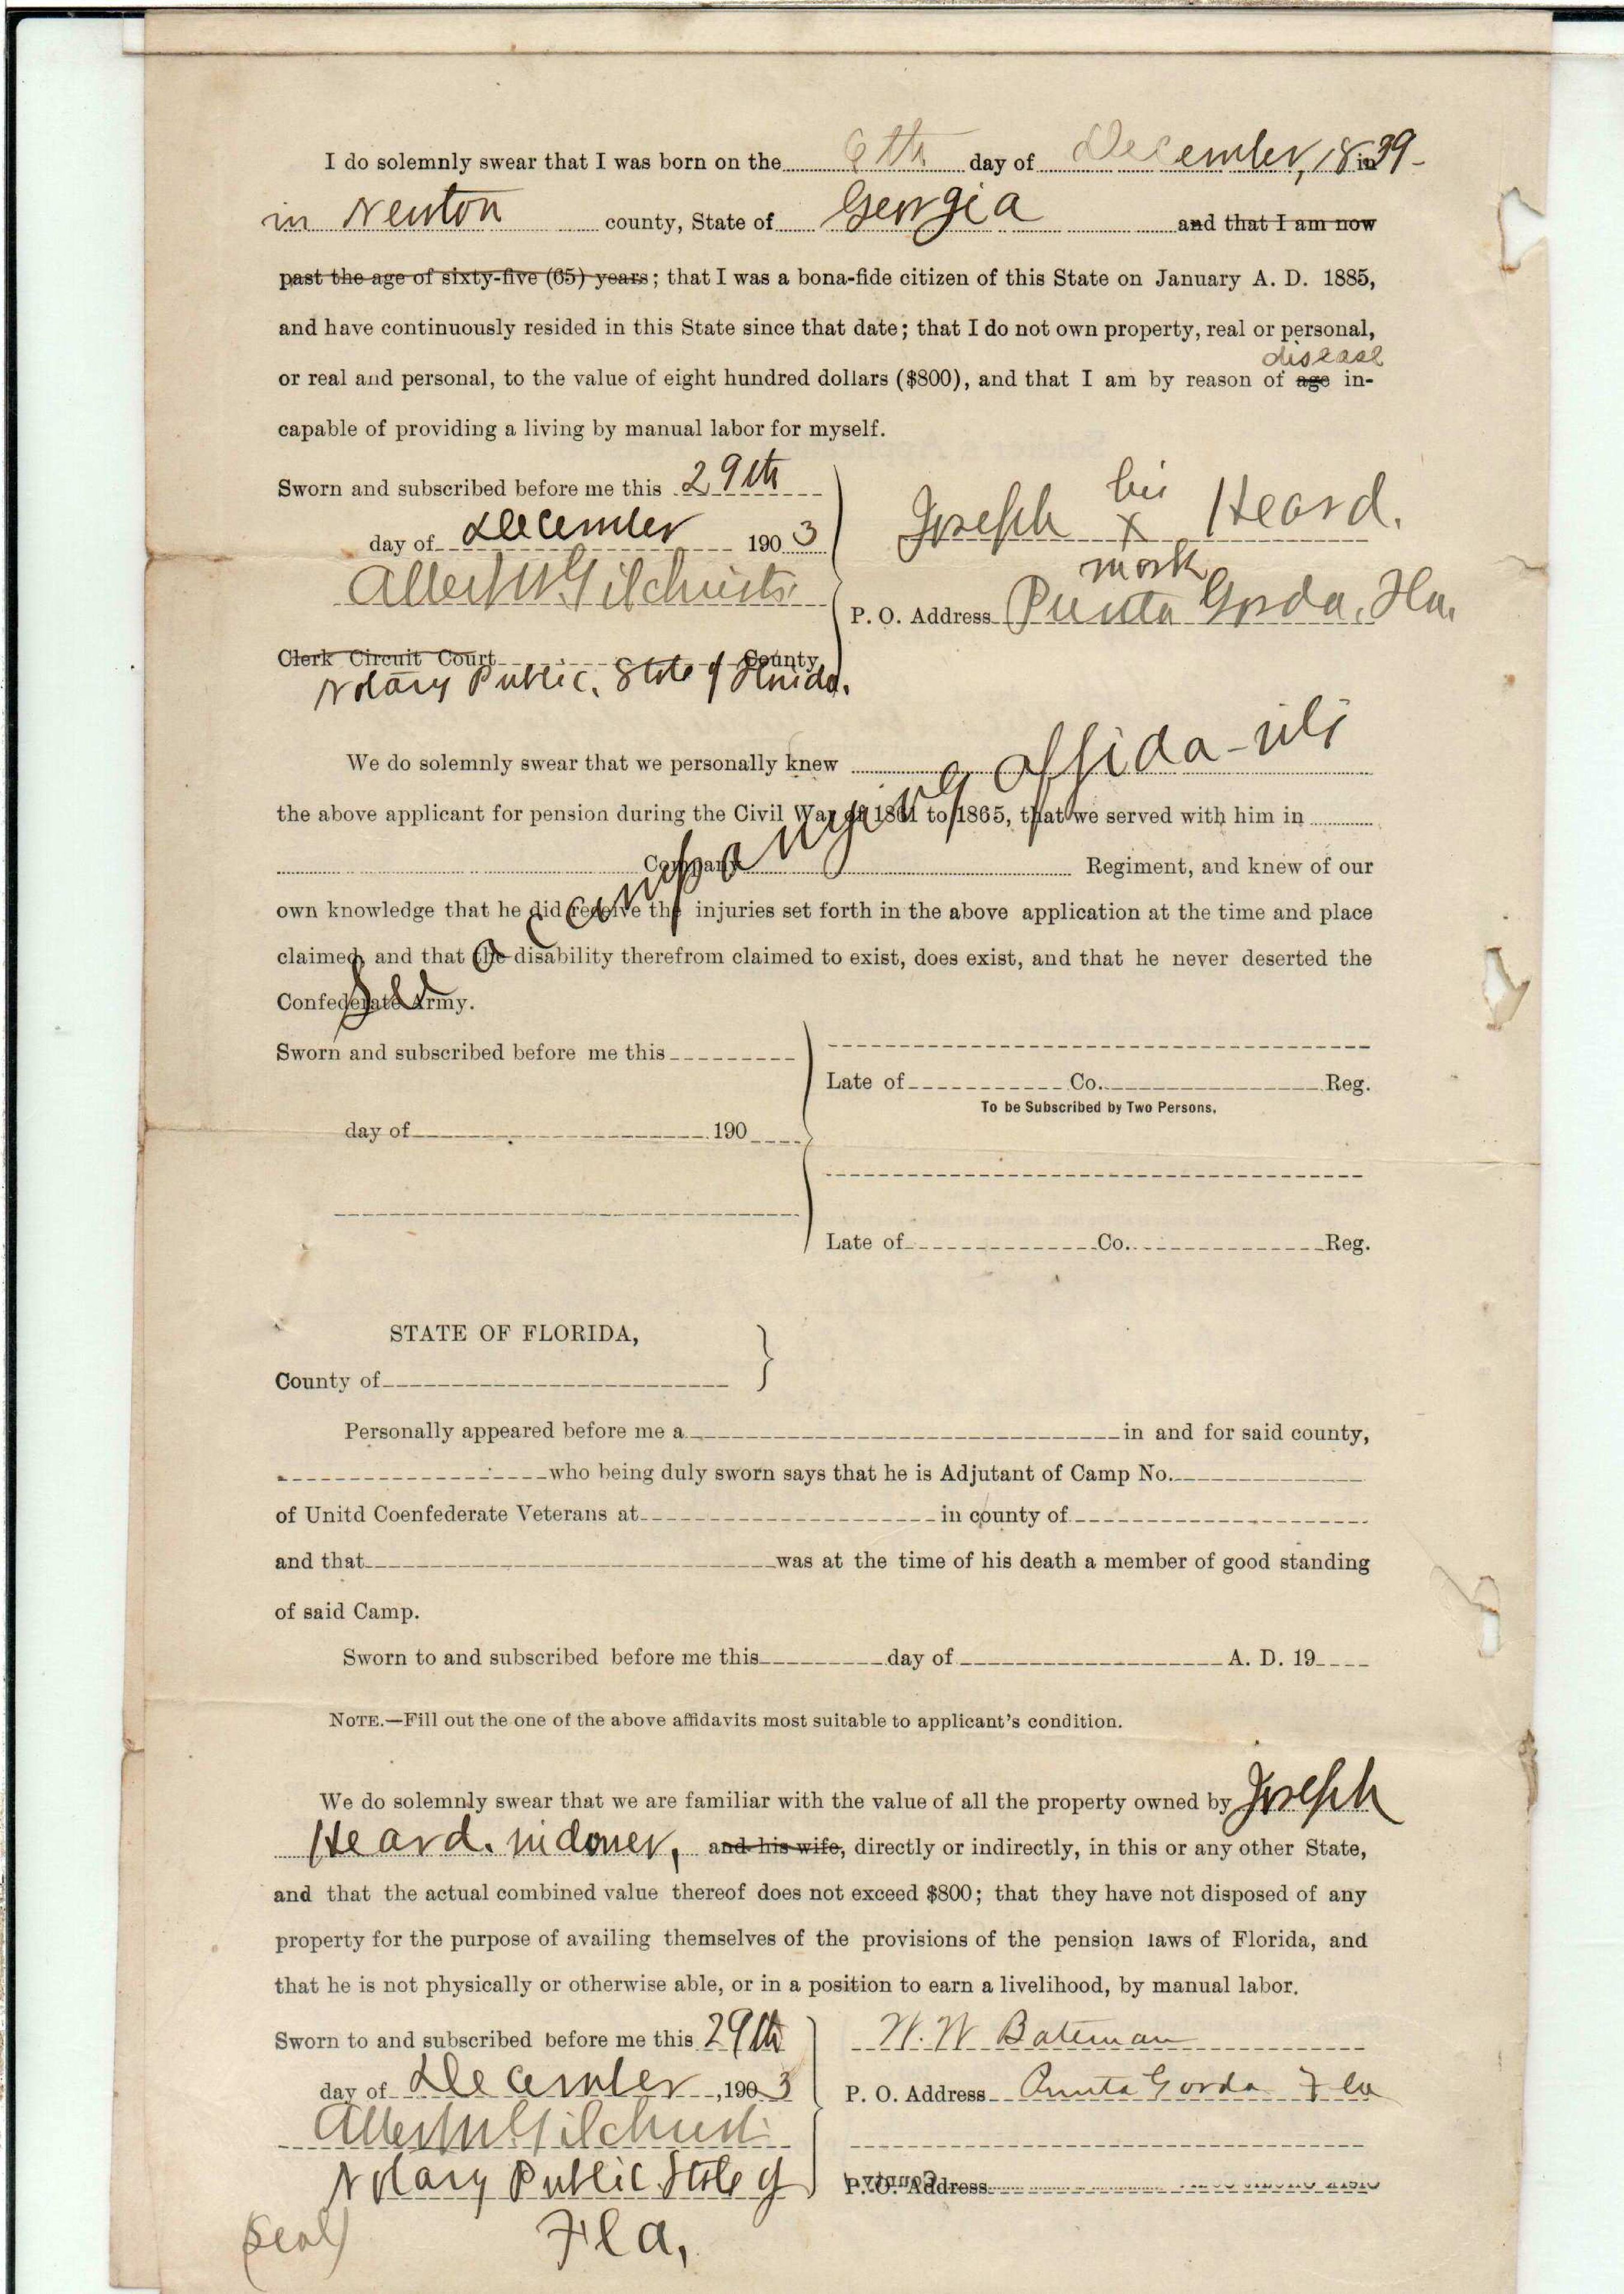 I do solemnly swear that I was born on the 6th day of December, 1839 in
in Newton county, State of Georgia and that I am now
past the age of sixty-five (65) years; that I was a bona-fide citizen of this State on January A. D. 1885,
and have continuously resided in this State since that date; that I do not own property, real or personal,
disease
or real and personal, to the value of eight hundred dollars ($800), and that I am by reason of age in-
capable of providing a living by manual labor for myself.
Sworn and subscribed before me this 29th
day of December 1903
Albert W Gilchrist
Clerk Circuit Court County
Notary Public, State of Florida.
his
Joseph x Heard.
mark
P. O. Address Punta Gorda, Fla.
We do solemnly swear that we personally knew
the above applicant for pension during the Civil War of 1861 to 1865, that we served with him in
Company Regiment, and knew of our
own knowledge that he did receive the injuries set forth in the above application at the time and place
claimed, and that the disability therefrom claimed to exist, does exist, and that he never deserted the
Confederate Army.
See accompanying affida-vits
Sworn and subscribed before me this
day of 190
Late of Co. Reg.
To be Subscribed by Two Persons.
Late of Co. Reg.
STATE OF FLORIDA,
County of
Personally appeared before me a in and for said county,
who being duly sworn says that he is Adjutant of Camp No.
of Unitd Coenfederate Veterans at in county of
and that was at the time of his death a member of good standing
of said Camp.
Sworn to and subscribed before me this day of A. D. 19
NOTE.—Fill out the one of the above affidavits most suitable to applicant's condition.
We do solemnly swear that we are familiar with the value of all the property owned by Joseph
Heard. widower, and his wife, directly or indirectly, in this or any other State,
and that the actual combined value thereof does not exceed $800; that they have not disposed of any
property for the purpose of availing themselves of the provisions of the pension laws of Florida, and
that he is not physically or otherwise able, or in a position to earn a livelihood, by manual labor.
Sworn to and subscribed before me this 29th
day of December, 1903
Albert W Gilchrist
Notary Public State of
Fla,
(Seal)
W. W Bateman
P. O. Address Punta Gorda Fla
P. O. Address